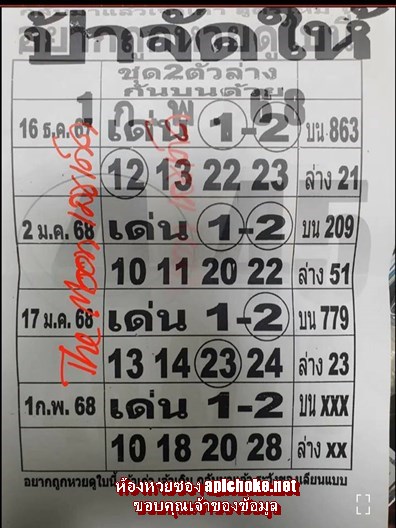 ป้าลัดให้
อยากถูกหวยดูใบนี้
ชุด2ตัวล่าง
กันบนด้วย
16 ธ.ค. 67 เด่น 1-2 บน 863
12 13 22 23 ล่าง 21
2 ม.ค. 68 เด่น 1-2 บน 209
10 11 20 22 ล่าง 51
17 ม.ค. 68 เด่น 1-2 บน 779
13 14 23 24 ล่าง 23
1ก.พ. 68 เด่น 1-2 บน xxx
10 18 20 28 ล่าง xx
อยากถูกหวยดูใบนี้
ของเลียนแบบ
ห้องหวยซอง aplchoke.net
ขอบคุณเจ้าของข้อมูล